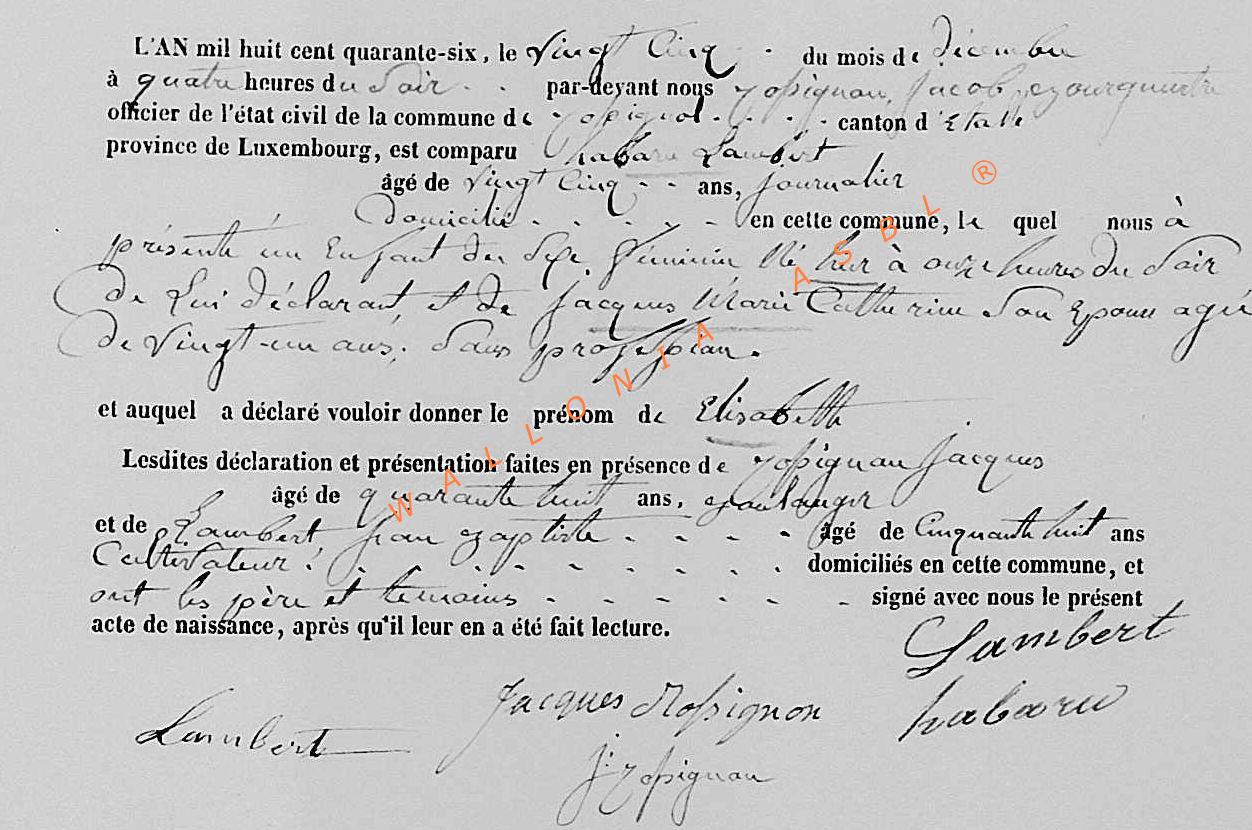 L'AN mil huit cent quarante-six, le vingt Cinq du mois de Décembre
à quatre heures du Soir par-devant nous Rossignon, Jacob,
officier de l'état civil de la commune de Rossignol canton d'Etalle
province de Luxembourg, est comparu habaru Lambert
âgé de vingt Cinq ans, journalier
Domicilié en cette commune, le quel nous à
présenté un Enfant du Sexe féminin Né hier à onze heures du Soir
de Lui déclarant, et de Jacques Marie Catherine Son Epouse agée
de vingt-un ans, Sans profession.
et auquel a déclaré vouloir donner le prénom de Elisabeth
Lesdites déclaration et présentation faites en présence de Rossignon Jacques
âgé de quarante huit ans, Boulanger
et de Lambert, Jean Baptiste âgé de Cinquante huit ans
Cultivateur. domiciliés en cette commune, et
ont les père et temoins signé avec nous le présent
acte de naissance, après qu'il leur en a été fait lecture.
Lambert
habaru
Jacques Rossignon
Lambert
J. Rossignon
WALLONIA ASBL ®